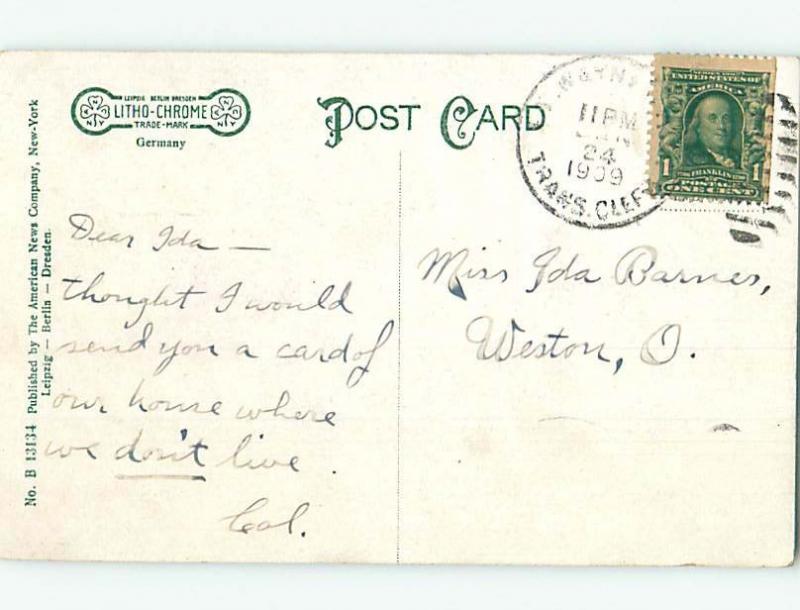 LEIPZIG BERLIN DRESDEN
LITHO-CHROME
TRADE-MARK
Germany
POST CARD
WAYN
11 PM
24
1909
TRANS. CLER
SERIES 1902
UNITED STATES OF
AMERICA
FRANKLIN
1 1
POSTAGE
ONE CENT
No. B 13134 Published by The American News Company, New-York
Leipzig — Berlin — Dresden.
Dear Ida —
thought I would
send you a card of
our house where
we don't live.
Cal.
Miss Ida Barnes,
Weston, O.